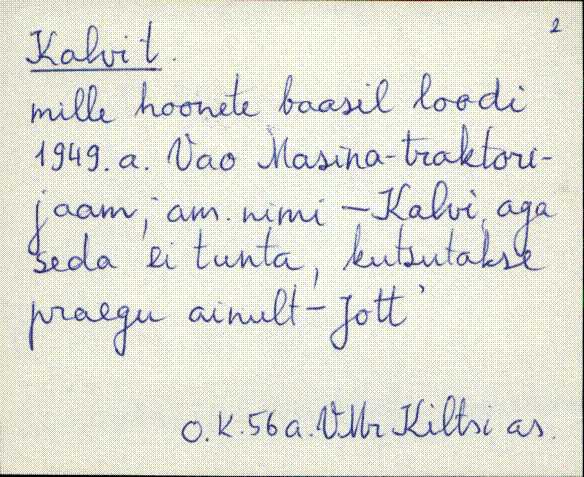 2
Kalvi t.
mille hoonete baasil loodi
1949. a. Vao Masina-traktori-
jaam; am. nimi - Kalvi, aga
seda ei tunta, kutsutakse
praegu ainult - Jott'
O.K. 56 a. VMr Kiltsi as.